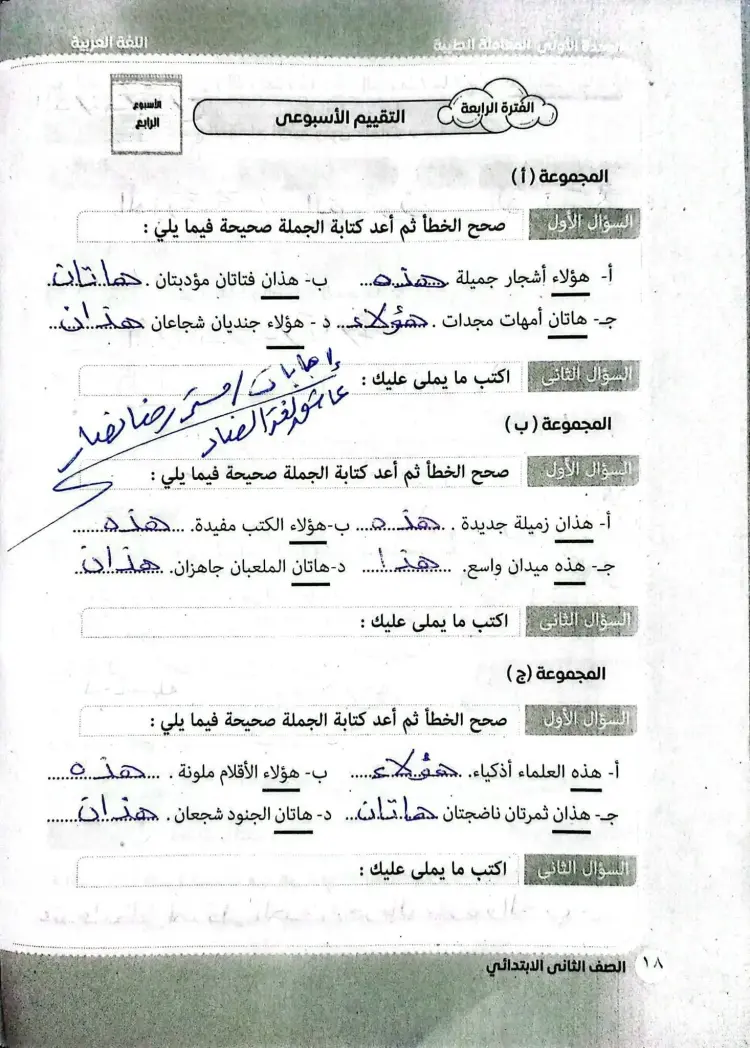 الوحدة الأولى المعاملة الطيبة اللغة العربية
الفترة الرابعة التقييم الأسبوعى الأسبوع الرابع
المجموعة (أ)
السؤال الأول صحح الخطأ ثم أعد كتابة الجملة صحيحة فيما يلي :
أ- هؤلاء أشجار جميلة هذه ب- هذان فتاتان مؤدبتان . هاتان
جـ- هاتان أمهات مجدات . هؤلاء د - هؤلاء جنديان شجاعان هذان
السؤال الثانى اكتب ما يملى عليك :
إجابات / مستر رضا نصار
عاشق لغة الضاد
المجموعة (ب)
السؤال الأول صحح الخطأ ثم أعد كتابة الجملة صحيحة فيما يلي :
أ- هذان زميلة جديدة . هذه ب-هؤلاء الكتب مفيدة. هذه
جـ- هذه ميدان واسع. هذا د-هاتان الملعبان جاهزان. هذان
السؤال الثانى اكتب ما يملى عليك :
المجموعة (ج)
السؤال الأول صحح الخطأ ثم أعد كتابة الجملة صحيحة فيما يلي :
أ- هذه العلماء أذكياء. هؤلاء ب- هؤلاء الأقلام ملونة . هذه
جـ- هذان ثمرتان ناضجتان هاتان د- هاتان الجنود شجعان . هذان
السؤال الثانى اكتب ما يملى عليك :
١٨ الصف الثانى الابتدائي